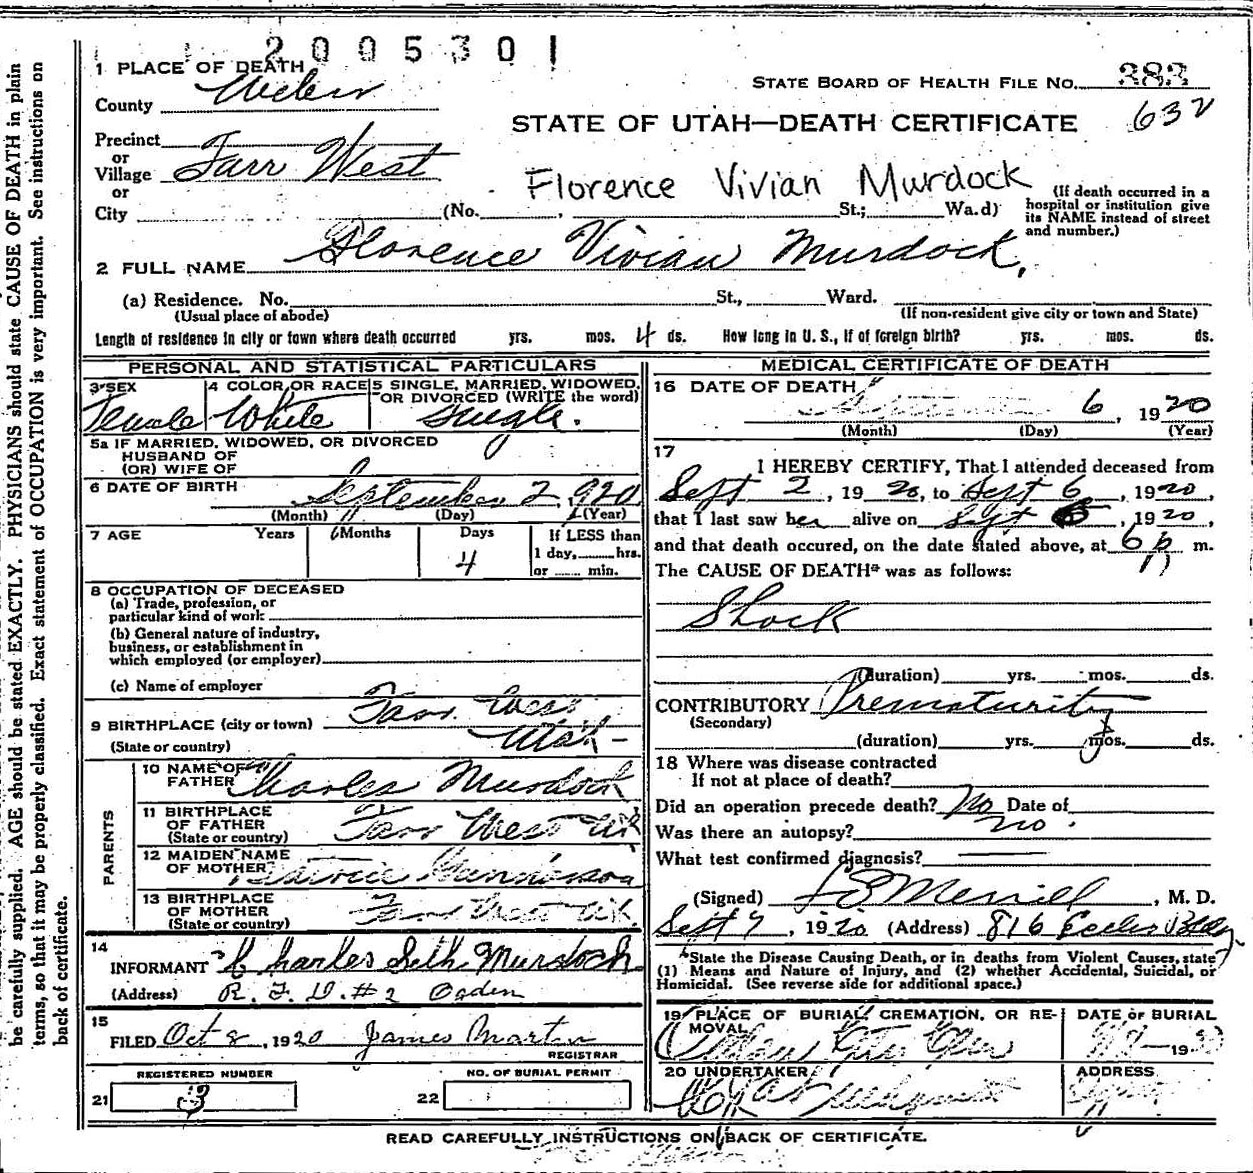 2005301
1 PLACE OF DEATH
STATE BOARD OF HEALTH FILE NO. 383
County Weber
632
STATE OF UTAH—DEATH CERTIFICATE
Precinct
or
Village Farr West
or
Florence Vivian Murdock
City (No. , St.; Wa.d)
(If death occurred in a
hospital or institution give
its NAME instead of street
and number.)
2 FULL NAME Florence Vivian Murdock,
(a) Residence. No. St., Ward.
(Usual place of abode) (If non-resident give city or town and State)
Length of residence in city or town where death occurred yrs. mos. 4 ds. How long in U. S., if of foreign birth? yrs. mos. ds.
PERSONAL AND STATISTICAL PARTICULARS
3 SEX 4 COLOR OR RACE 5 SINGLE, MARRIED, WIDOWED,
OR DIVORCED (WRITE the word)
Female White Single.
5a IF MARRIED, WIDOWED, OR DIVORCED
HUSBAND OF
(OR) WIFE OF
6 DATE OF BIRTH September 2, 1920
(Month) (Day) (Year)
7 AGE Years Months Days If LESS than
1 day, hrs.
4 or min.
8 OCCUPATION OF DECEASED
(a) Trade, profession, or
particular kind of work
(b) General nature of industry,
business, or establishment in
which employed (or employer)
(c) Name of employer
9 BIRTHPLACE (city or town) Farr West
(State or country) Utah
PARENTS
10 NAME OF
FATHER Charles Murdock
11 BIRTHPLACE
OF FATHER Farr West Ut
(State or country)
12 MAIDEN NAME
OF MOTHER
13 BIRTHPLACE
OF MOTHER Farr West Ut.
(State or country)
14
INFORMANT Charles Seth Murdock
(Address) R. F. D. #2 Ogden
15
FILED Oct 8, 1920 James Martin
REGISTRAR
REGISTERED NUMBER NO. OF BURIAL PERMIT
21 3 22
MEDICAL CERTIFICATE OF DEATH
16 DATE OF DEATH
6, 1920
(Month) (Day) (Year)
17
I HEREBY CERTIFY, That I attended deceased from
Sept 2, 1920, to Sept 6, 1920,
that I last saw her alive on Sept , 1920,
and that death occured, on the date stated above, at 6 p m.
The CAUSE OF DEATH* was as follows:
Shock
(duration) yrs. mos. ds.
CONTRIBUTORY Prematurity
(Secondary)
(duration) yrs. mos. ds.
18 Where was disease contracted
If not at place of death?
Did an operation precede death? No Date of
Was there an autopsy? no.
What test confirmed diagnosis?
(Signed) Merrill, M. D.
Sept 7, 1920 (Address) 816 Eccles Bldg
*State the Disease Causing Death, or in deaths from Violent Causes, state
(1) Means and Nature of Injury, and (2) whether Accidental, Suicidal, or
Homicidal. (See reverse side for additional space.)
19 PLACE OF BURIAL, CREMATION, OR RE-
MOVAL
DATE OF BURIAL
19
20 UNDERTAKER
ADDRESS
READ CAREFULLY INSTRUCTIONS ON BACK OF CERTIFICATE.
be carefully supplied. AGE should be stated EXACTLY. PHYSICIANS should state CAUSE OF DEATH in plain
terms, so that it may be properly classified. Exact statement of OCCUPATION is very important. See instructions on
back of certificate.